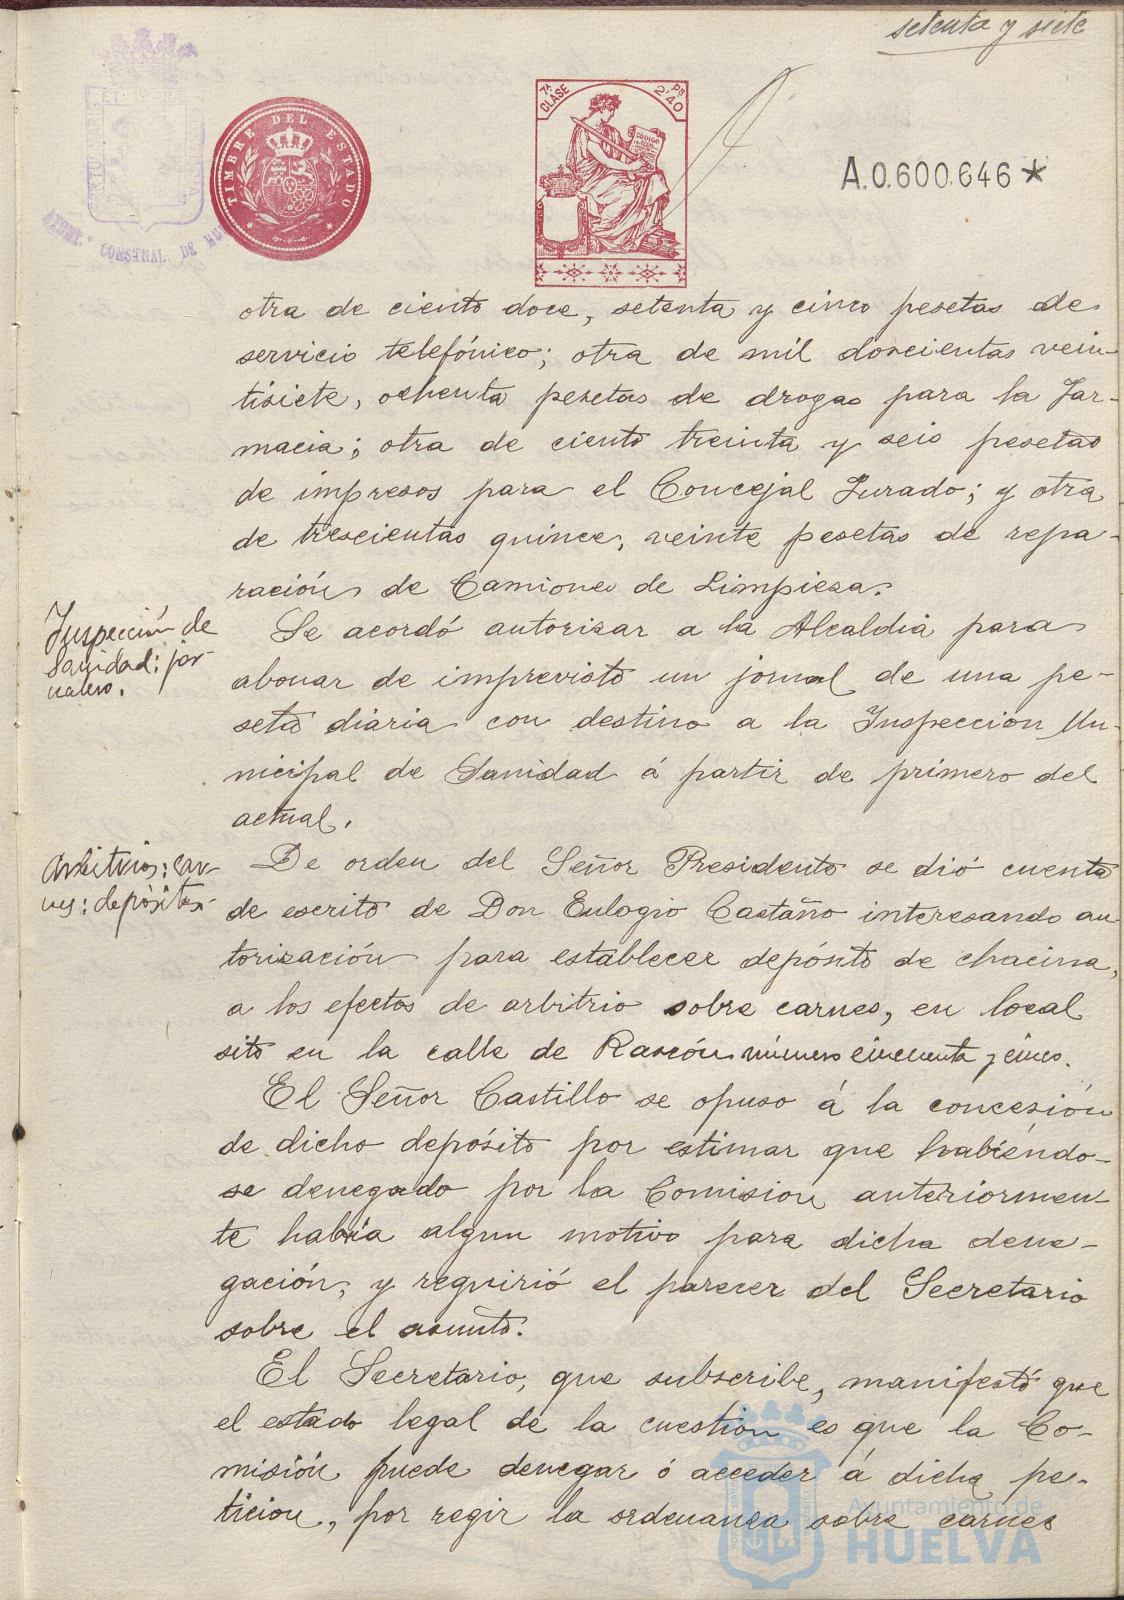 setenta y siete
TIMBRE DEL ESTADO
7ª CLASE
Ps 2'40
CODIGO
A.0.600.646*
AYUNT. CONSTNAL. DE HU
otra de ciento doce, setenta y cinco pesetas de
servicio telefónico; otra de mil doscientas vein-
tisiete, ochenta pesetas de drogas para la Far-
macia; otra de ciento treinta y seis pesetas
de impresos para el Concejal Jurado; y otra
de trescientas quince, veinte pesetas de repa-
ración de Camiones de Limpieza.
Inspección de
Sanidad: jor-
nalero.
Se acordó autorizar a la Alcaldia para
abonar de imprevisto un jornal de una pe-
seta diaria con destino a la Inspeccion Mu-
nicipal de Sanidad á partir de primero del
actual.
Arbitrios: car-
nes: depósitos.
De orden del Señor Presidente se dió cuenta
de escrito de Don Eulogio Castaño interesando au-
torización para establecer depósito de chacina,
a los efectos de arbitrio sobre carnes, en local
sito en la calle de Rascón número cincuenta y cinco.
El Señor Castillo se opuso á la concesión
de dicho depósito por estimar que habiéndo-
se denegado por la Comision anteriormen-
te habría algun motivo para dicha dene-
gación, y requirió el parecer del Secretario
sobre el asunto.
El Secretario, que subscribe, manifestó que
el estado legal de la cuestión es que la Co-
misión puede denegar ó acceder á dicha pe-
ticion, por regir la ordenanza sobre carnes
Ayuntamiento de
HUELVA